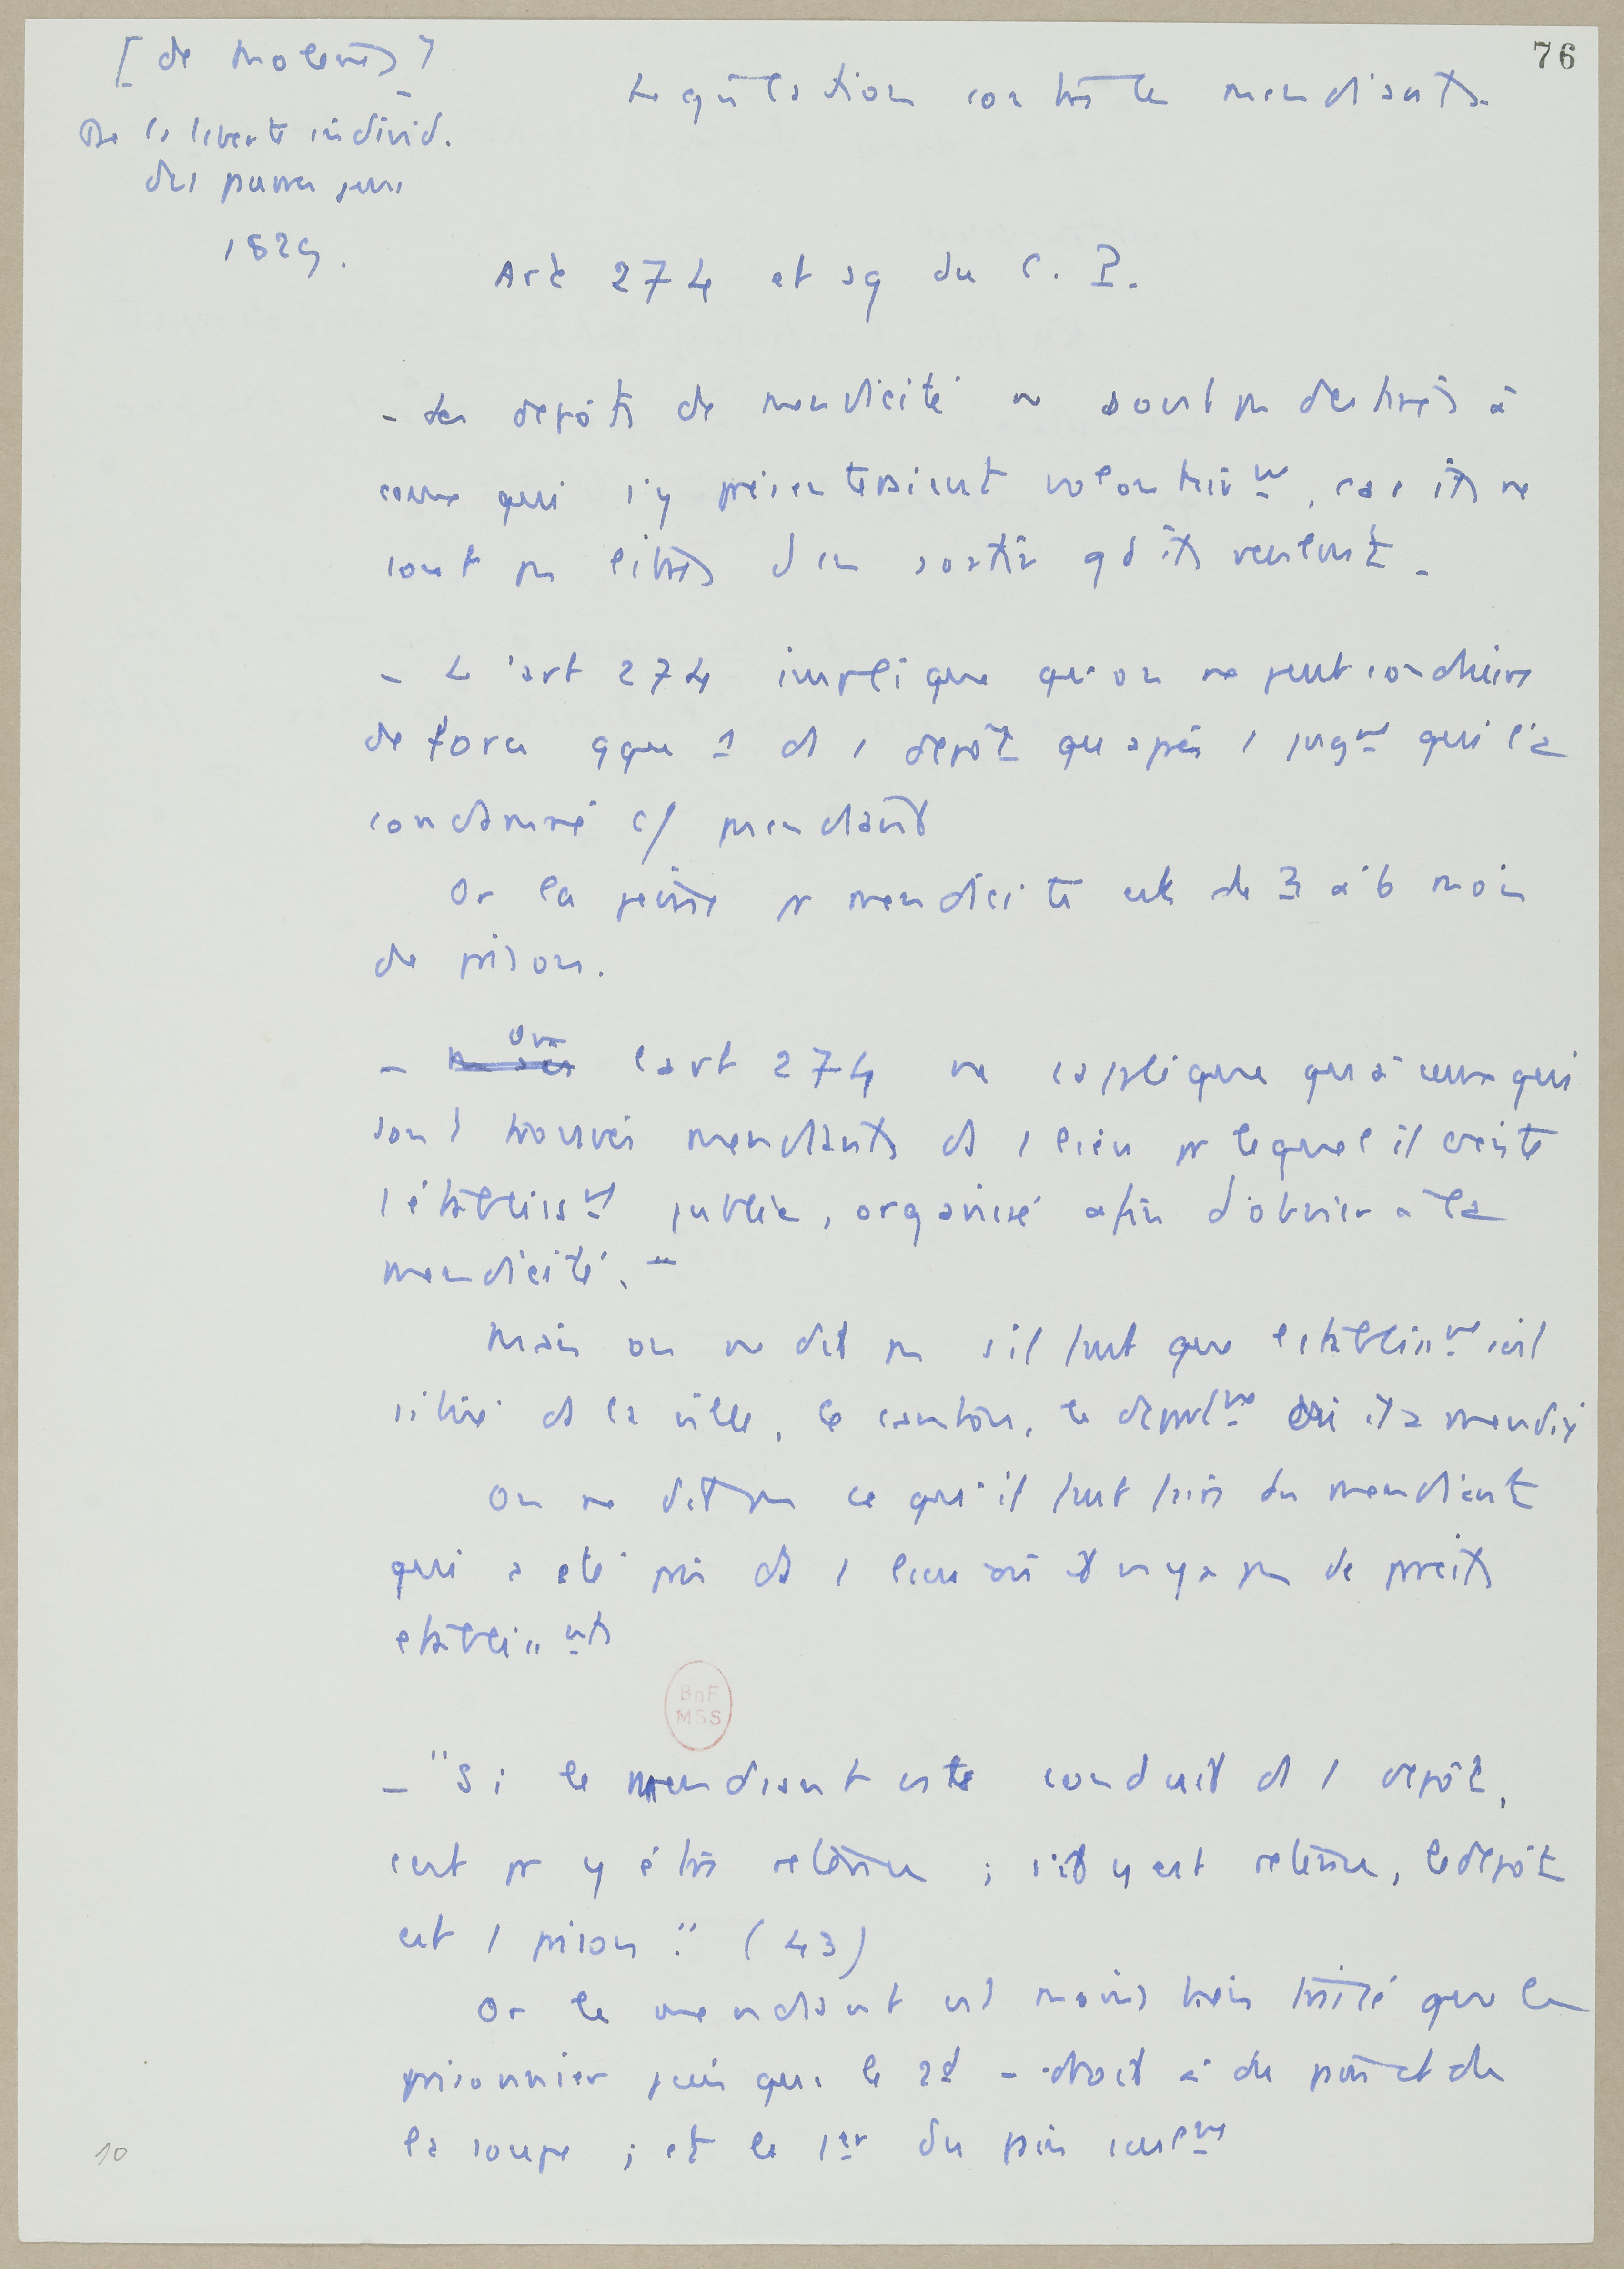 76
[de Molenes]
De la liberté individ.
des pauvres gens
1829.
Législation contre les mendiants.
Art 274 et sq du C. P.
- Les dépôts de mendicité ne sont pas destinés à
ceux qui s'y présenteraient volontairmt, car ils ne
sont pas libres d'en sortir qd ils veulent.
- L'art 274 implique qu'on ne peut conduire
de force qque 1 ds 1 dépôt qu'après 1 jugmt qui l'a
condamné c/ mendiant
Or la peine pr mendicité est de 3 à 6 mois
de prison.
- Or l'art 274 ne s'applique qu'à ceux qui
sont trouvés mendiants ds 1 lieu pr lequel il existe
1 établisst public, organisé afin d'obvier à la
mendicité."
Mais on ne dit pas s'il faut que l'établissmt soit
situé ds la ville, le canton, le départmt où il a mendié
On ne dit pas ce qu'il faut faire du mendiant
qui a été pris ds 1 lieu où il n'y a pas de pareils
établissnts
BnF
MSS
- "Si le mendiant est conduit ds 1 dépôt,
c'est pr y être retenu ; s'il y est retenu, le dépôt
est 1 prison." (43)
Or le mendiant est moins bien traité que le
prisonnier puisque le 2d a droit à du pain et de
la soupe ; et le 1er du pain seulmt
10